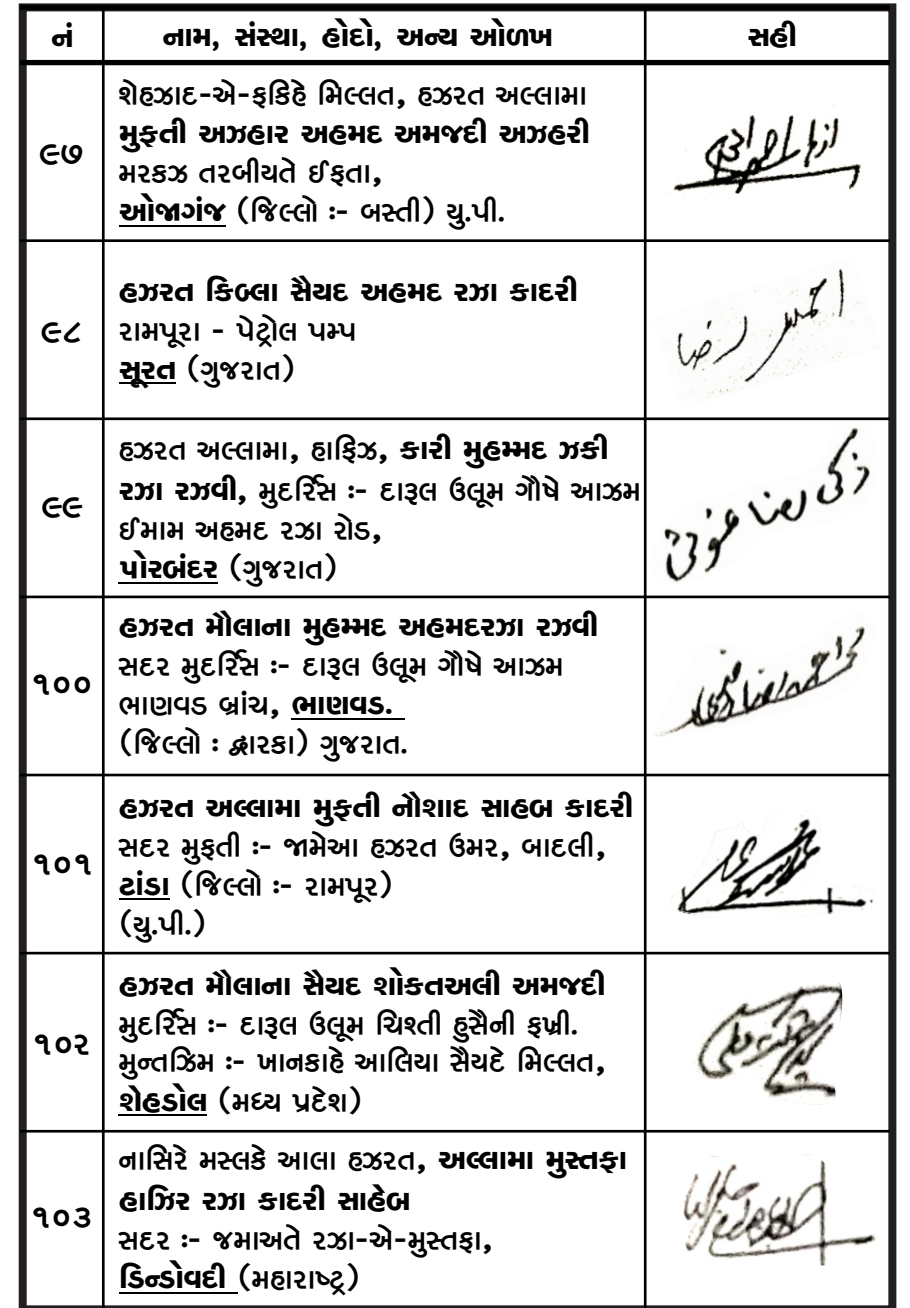 નં નામ, સંસ્થા, હોદો, અન્ય ઓળખ સહી
૯૭
શેહઝાદ-એ-ફકિહે મિલ્લત, હઝરત અલ્લામા
મુફતી અઝહાર અહમદ અમજદી અઝહરી
મરકઝ તરબીયતે ઈફતા,
ઓજાગંજ (જિલ્લો :- બસ્તી) યુ.પી.
૯૮
હઝરત કિબ્લા સૈયદ અહમદ રઝા કાદરી
રામપૂરા - પેટ્રોલ પમ્પ
સૂરત (ગુજરાત)
احمد رضا
૯૯
હઝરત અલ્લામા, હાફિઝ, કારી મુહમ્મદ ઝકી
રઝા રઝવી, મુદર્રિસ :- દારૂલ ઉલૂમ ગૌષે આઝમ
ઈમામ અહમદ રઝા રોડ,
પોરબંદર (ગુજરાત)
૧૦૦
હઝરત મૌલાના મુહમ્મદ અહમદરઝા રઝવી
સદર મુદર્રિસ :- દારૂલ ઉલૂમ ગૌષે આઝમ
ભાણવડ બ્રાંચ, ભાણવડ.
(જિલ્લો : દ્વારકા) ગુજરાત.
૧૦૧
હઝરત અલ્લામા મુફતી નૌશાદ સાહબ કાદરી
સદર મુફતી :- જામેઆ હઝરત ઉમર, બાદલી,
ટાંડા (જિલ્લો :- રામપૂર)
(યુ.પી.)
૧૦૨
હઝરત મૌલાના સૈયદ શોકતઅલી અમજદી
મુદર્રિસ :- દારૂલ ઉલૂમ ચિશ્તી હુસૈની ફખ્રી.
મુન્તઝિમ :- ખાનકાહે આલિયા સૈયદે મિલ્લત,
શેહડોલ (મધ્ય પ્રદેશ)
૧૦૩
નાસિરે મસ્લકે આલા હઝરત, અલ્લામા મુસ્તફા
હાઝિર રઝા કાદરી સાહેબ
સદર :- જમાઅતે રઝા-એ-મુસ્તફા,
ડિન્ડોવદી (મહારાષ્ટ્ર)